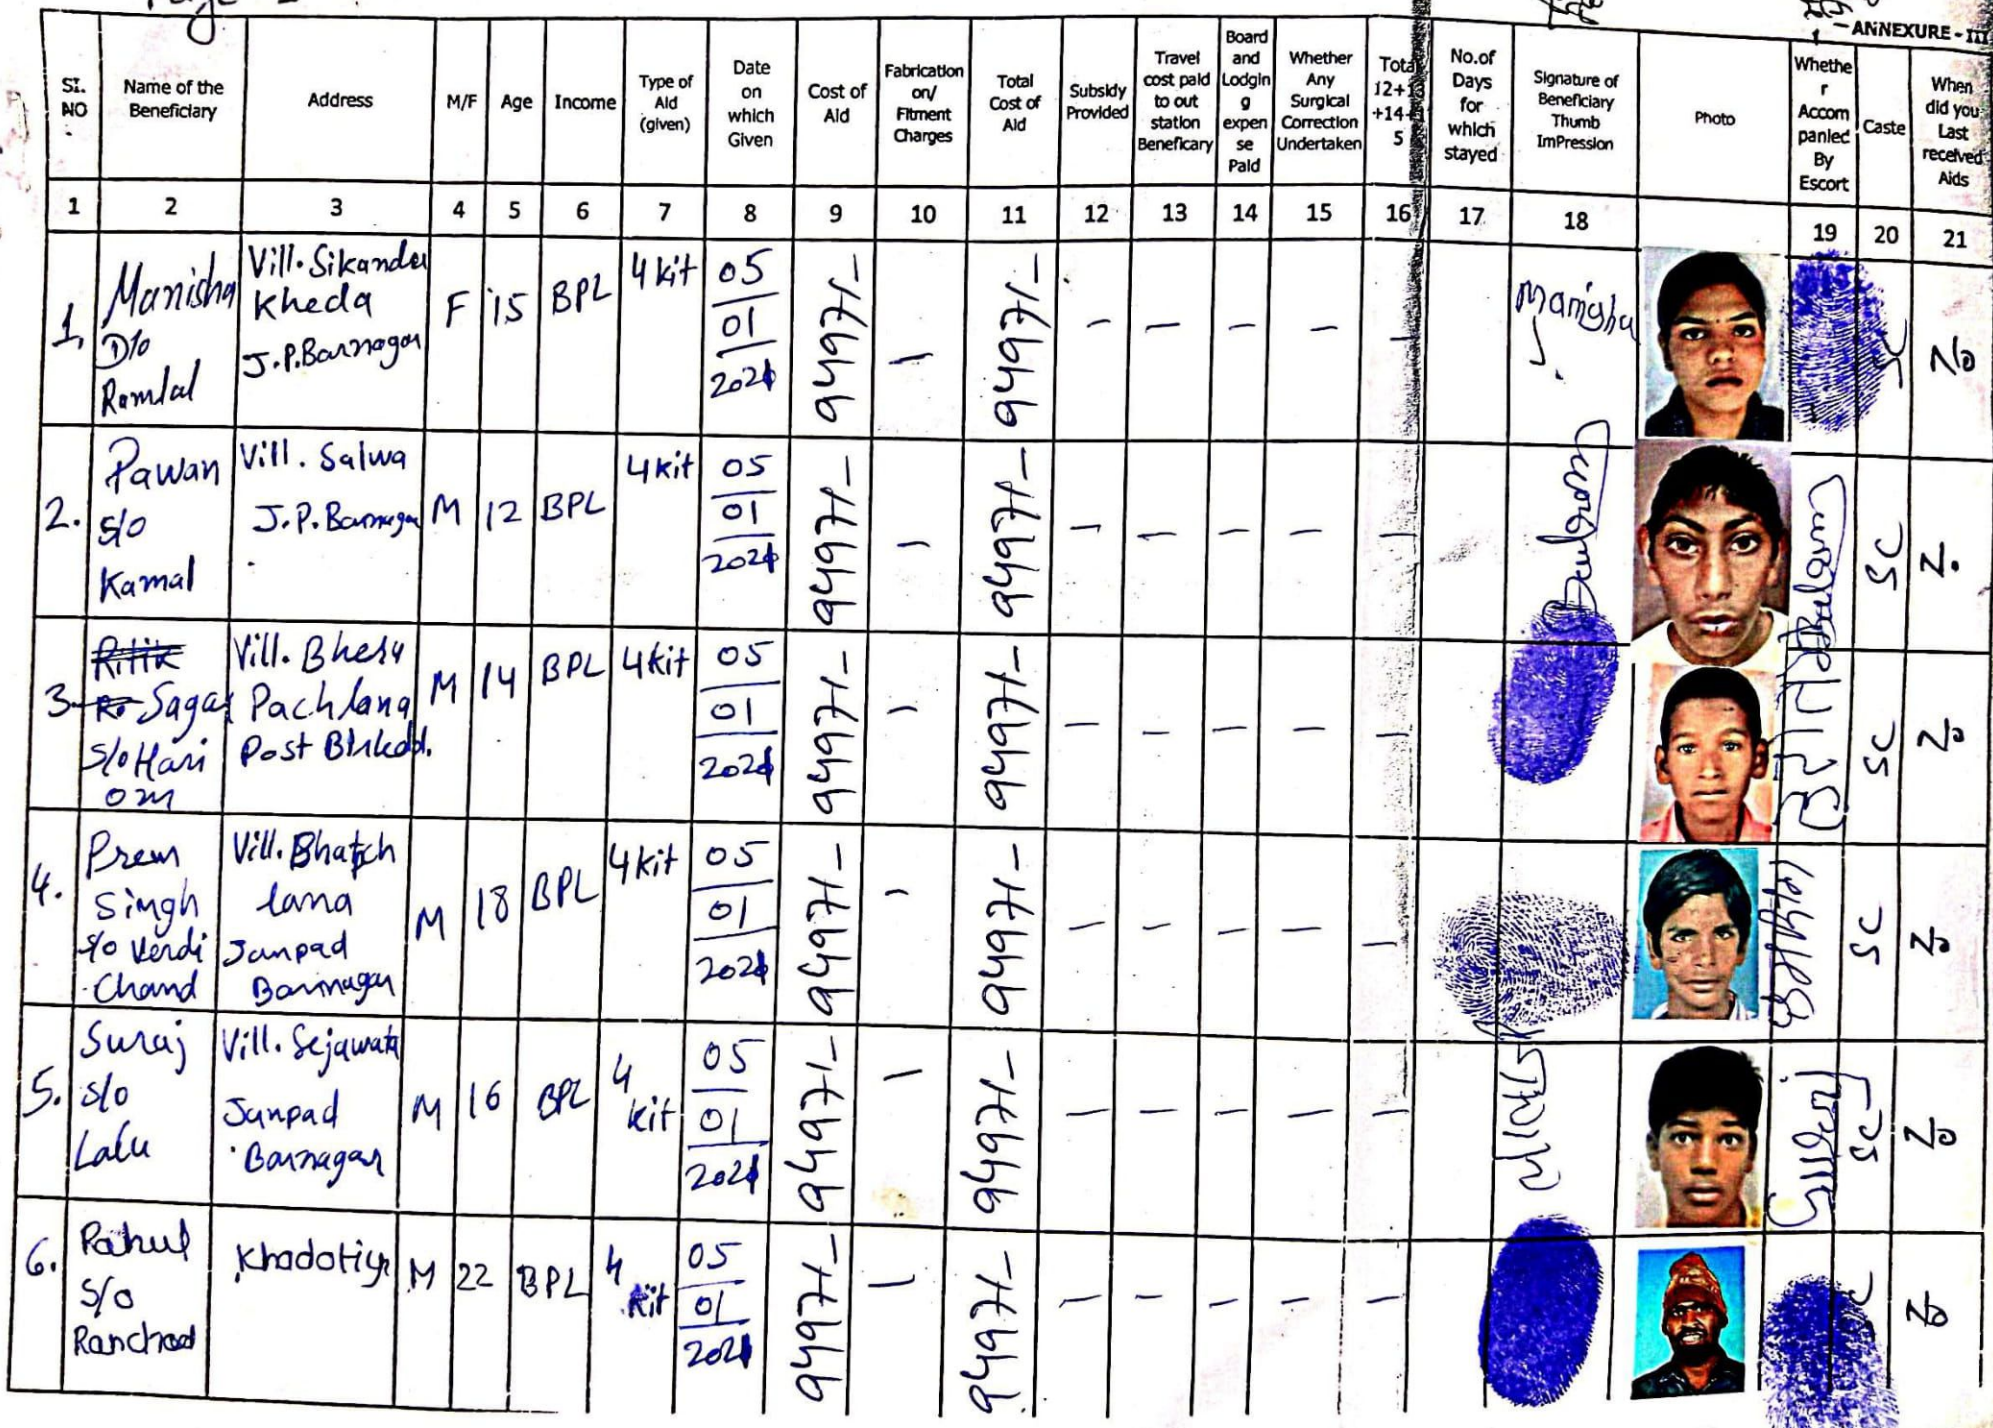 Page
ANNEXURE - III
SI. NO
Name of the Beneficiary
Address
M/F
Age
Income
Type of Aid (given)
Date on which Given
Cost of Aid
Fabrication on/ Fitment Charges
Total Cost of Aid
Subsidy Provided
Travel cost paid to out station Beneficary
Board and Lodgin g expen se Paid
Whether Any Surgical Correction Undertaken
No.of Days for which stayed
Signature of Beneficiary Thumb ImPression
Photo
Whethe r Accom panied By Escort
Caste
When did you Last received Aids
1 2 3 4 5 6 7 8 9 10 11 12 13 14 15 16 17 18 19 20 21
1. Manisha D/o Ramlal Vill. Sikander Kheda J.P. Barnagar F 15 BPL 4 kit 05 01 2021 9497/- - 9497/- - - - - - Manisha SC No
2. Pawan S/o Kamal Vill. Salwa J.P. Barnagar M 12 BPL 4 kit 05 01 2021 9497/- - 9497/- - - - - - SC No
3. Sagar S/o Hari om Vill. Bhesu Pachlana Post M 14 BPL 4 kit 05 01 2021 9497/- - 9497/- - - - - - SC No
4. Prem Singh S/o Verdi Chand Vill. lana Janpad Barnagar M 18 BPL 4 kit 05 01 2021 9497/- - 9497/- - - - - - SC No
5. Suraj S/o Lalu Vill. Sejawata Janpad Barnagar M 16 BPL 4 kit 05 01 2021 9497/- - 9497/- - - - - - SC No
6. Rahul S/o Ranchod Khadotiya M 22 BPL 4 kit 05 01 2021 9497/- - 9497/- - - - - - SC No